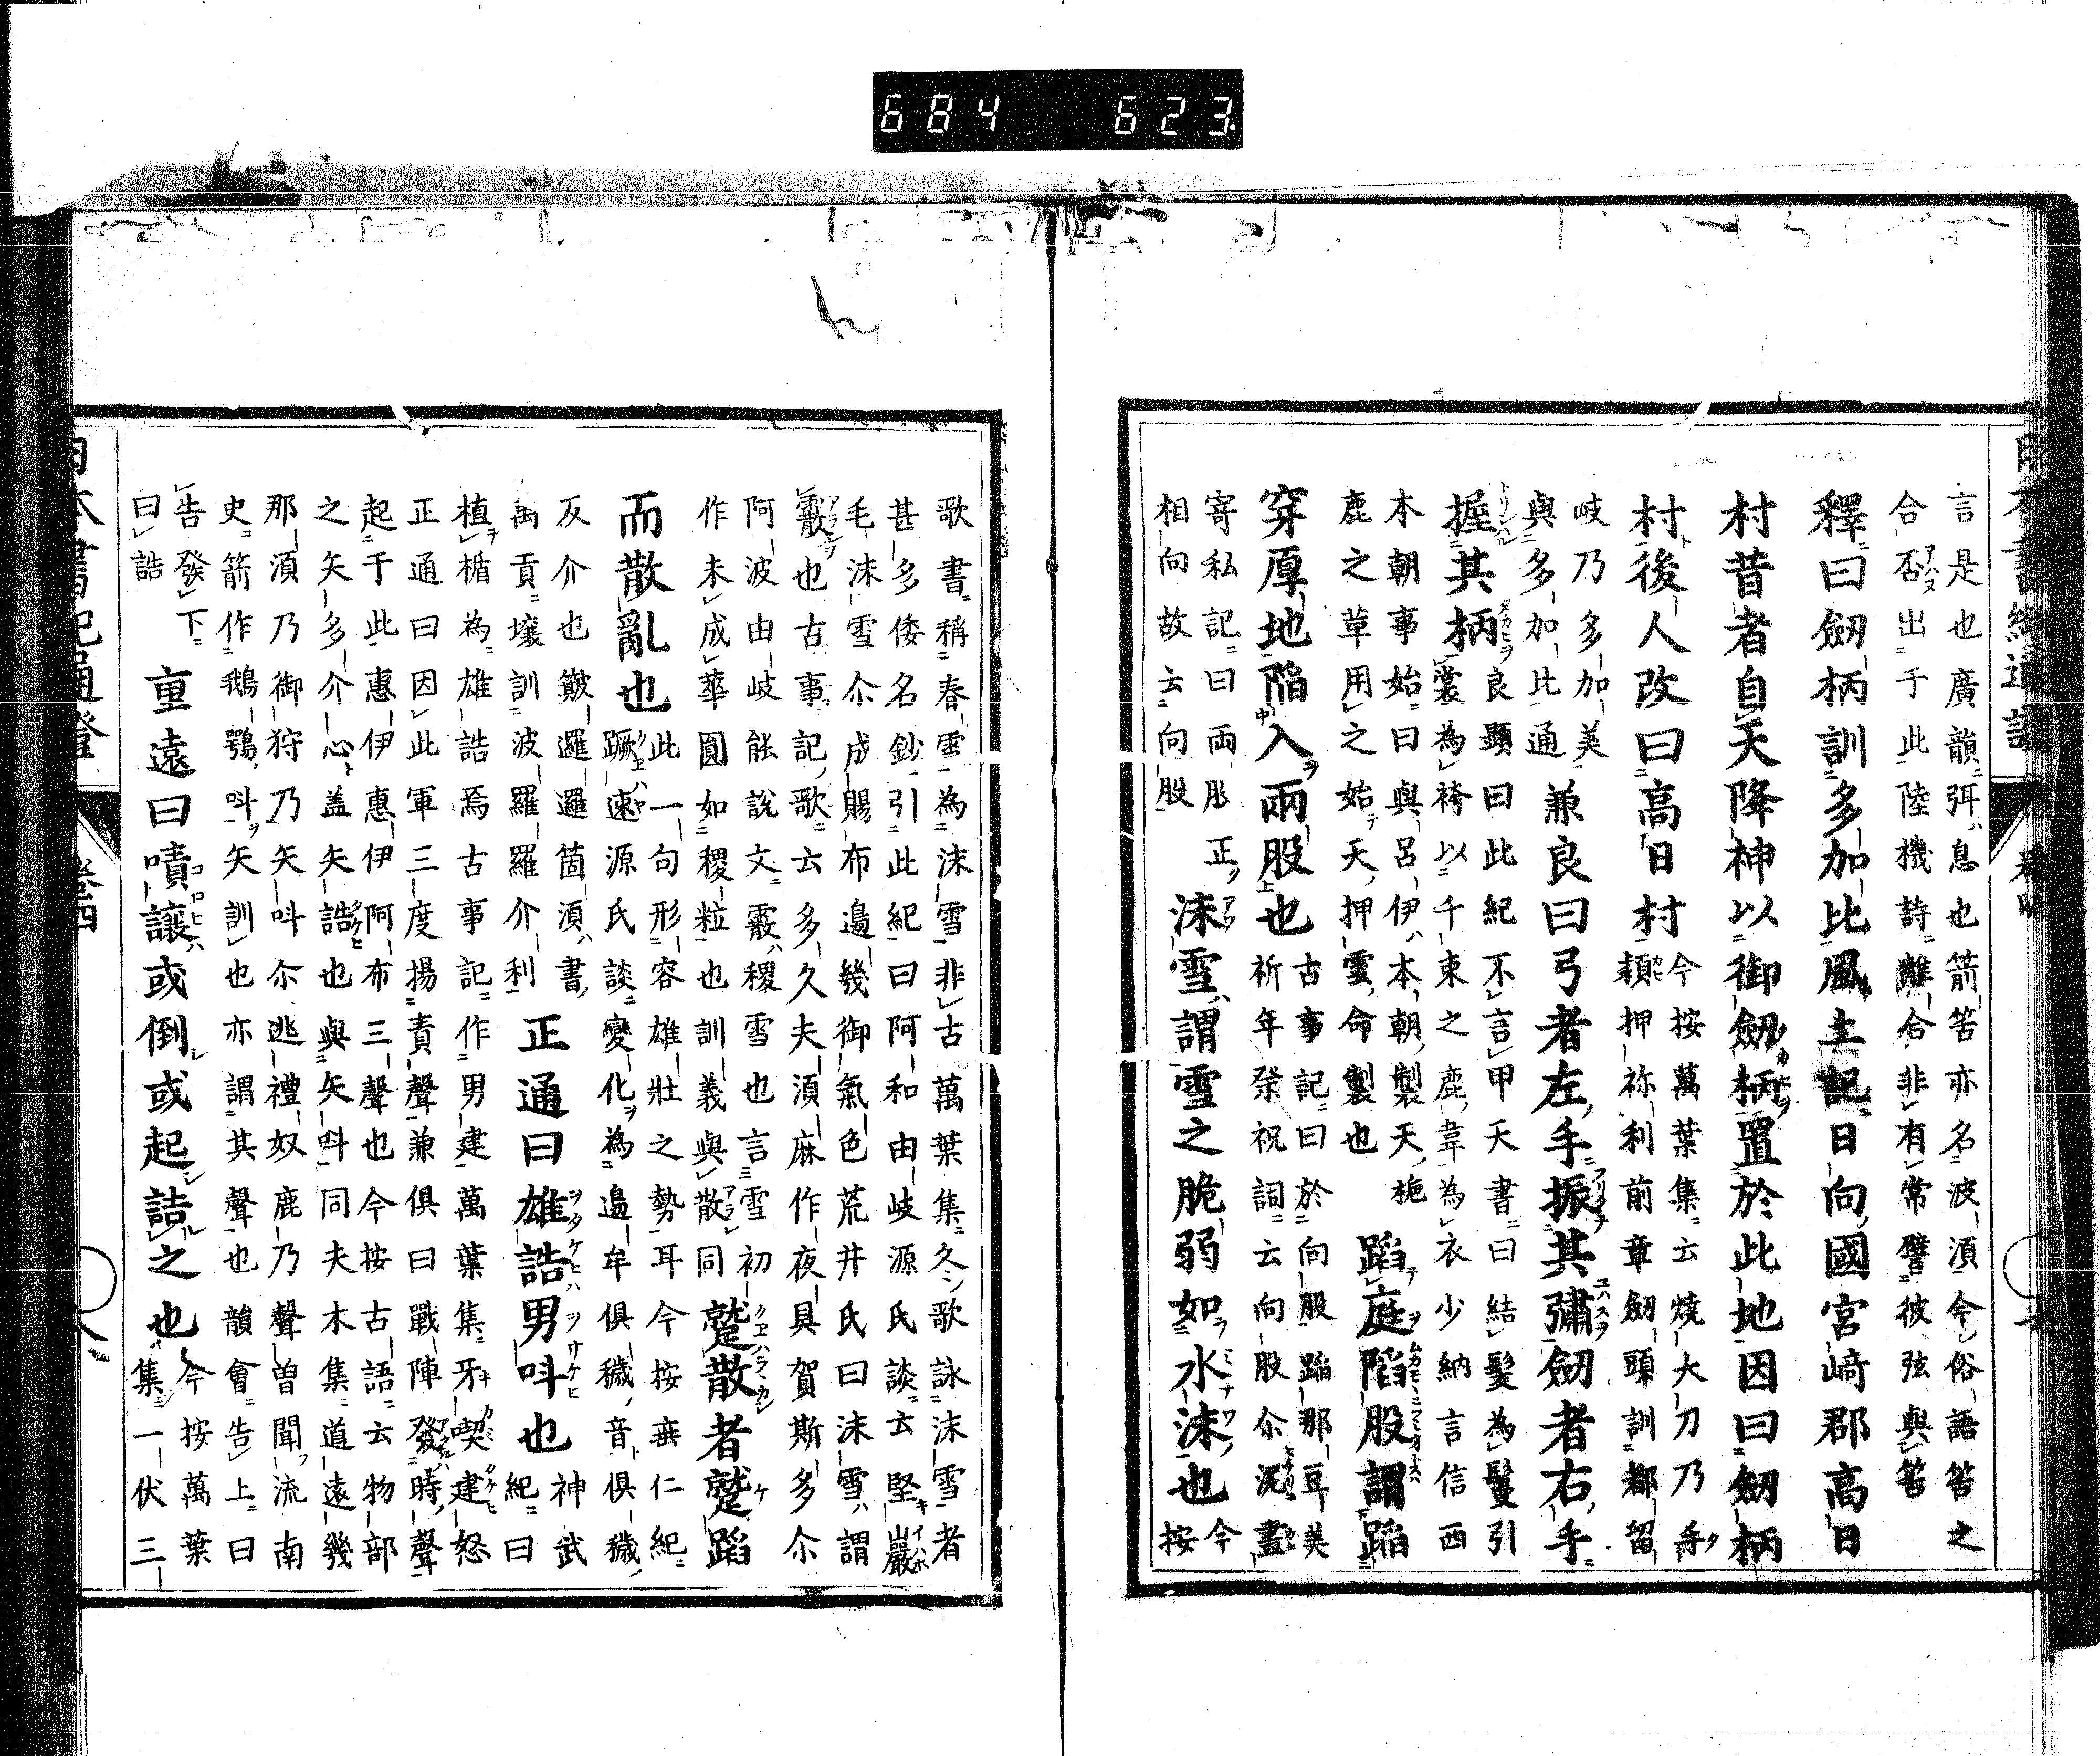 684 623
言是也廣韻弭息也箭筈亦名波湏今俗語筈之
合否出于此陸機詩離合非有常譬彼弦與筈
釋曰劒柄訓多加比風土記日向國宮﨑郡高日
村昔者自天降神以御劒柄置於此地因曰劒柄
村後人改曰高日村
今按萬葉集云燒大刀乃手
頴押祢利前章劒頭訓都留
岐乃多加美
與多加比通
兼良曰弓者左手振其彇劒者右手
握其柄
良顯曰此紀不言甲天書曰結髮為鬘引
裳為袴以千束之鹿韋為衣少納言信西
本朝事始曰與呂伊本朝製天梔
鹿之草用之始天押雲命製也
蹈庭陷股謂蹈
穿厚地陷入兩股也
古事記曰於向股蹈那豆美
祈年祭祝詞云向股尒泥畫
寄私記曰兩肜正
相向故云向股
沫雪謂雪之脆弱如水沫也
今
按
歌書稱春雪為沫雪非古萬葉集久歌詠沫雪者
甚多倭名鈔引此紀曰阿和由岐源氏談云堅山巖
毛沫雪尒成賜布邉幾御氣色荒井氏曰沫雪謂
霰也古事記歌云多久夫湏麻作夜具賀斯多尒
阿波由岐能說文霰稷雪也言雪初
作未成華圓如稷粒也訓義與散同
蹵散者蹵蹈
而散亂也
此一句形容雄壯之勢耳今按垂仁紀
蹶速源氏談變化為邉牟俱穢音俱穢
反介也簸邏邏箇湏書
禹貢壤訓波羅羅介利
正通曰雄誥男呌也
神武
紀曰
植楯為雄誥焉古事記作男建萬葉集牙喫建怒
正通曰因此軍三度揚責聲兼俱曰戰陣發時聲
起于此惠伊惠伊阿布三聲也今按古語云物部
之矢多介心盖矢誥也與矢呌同夫木集道遠幾
那湏乃御狩乃矢呌尒逃禮奴鹿乃聲曽聞流南
史箭作鵝鴞呌矢訓也亦謂其聲也韻會告上曰
告發下
曰誥
重遠曰嘖讓或倒或起詰之也
今按萬葉
集一伏三